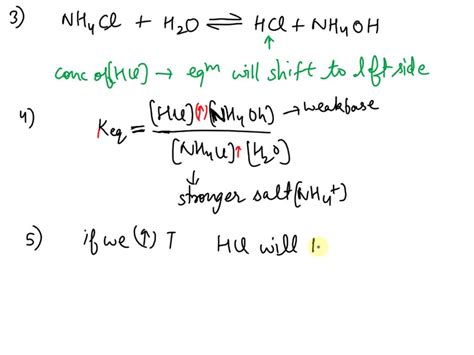 3) NH4Cl + H2O ⇌ HCl + NH4OH
↑
conc of [HCl] → eqm will shift to lft side
4) Keq = [HCl](↑)[NH4Oh] → weakbase
[NH4Cl]↑[H2O]
↓
stronger salt (NH4+)
5) if we (↑) T HCl will